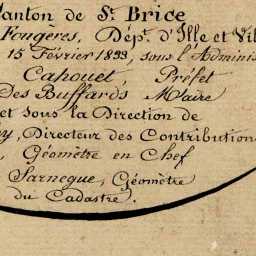 Canton de St. Brice
Fougères, Dépt. d'Ille et Vil
15 Février 1833, sous l'Adminis
Cahouet, Préfet
Des Buffards Maire
et sous la Direction de
y, Directeur des Contribution
, Géomètre en Chef
Sarneque, Géomètre
du Cadastre.